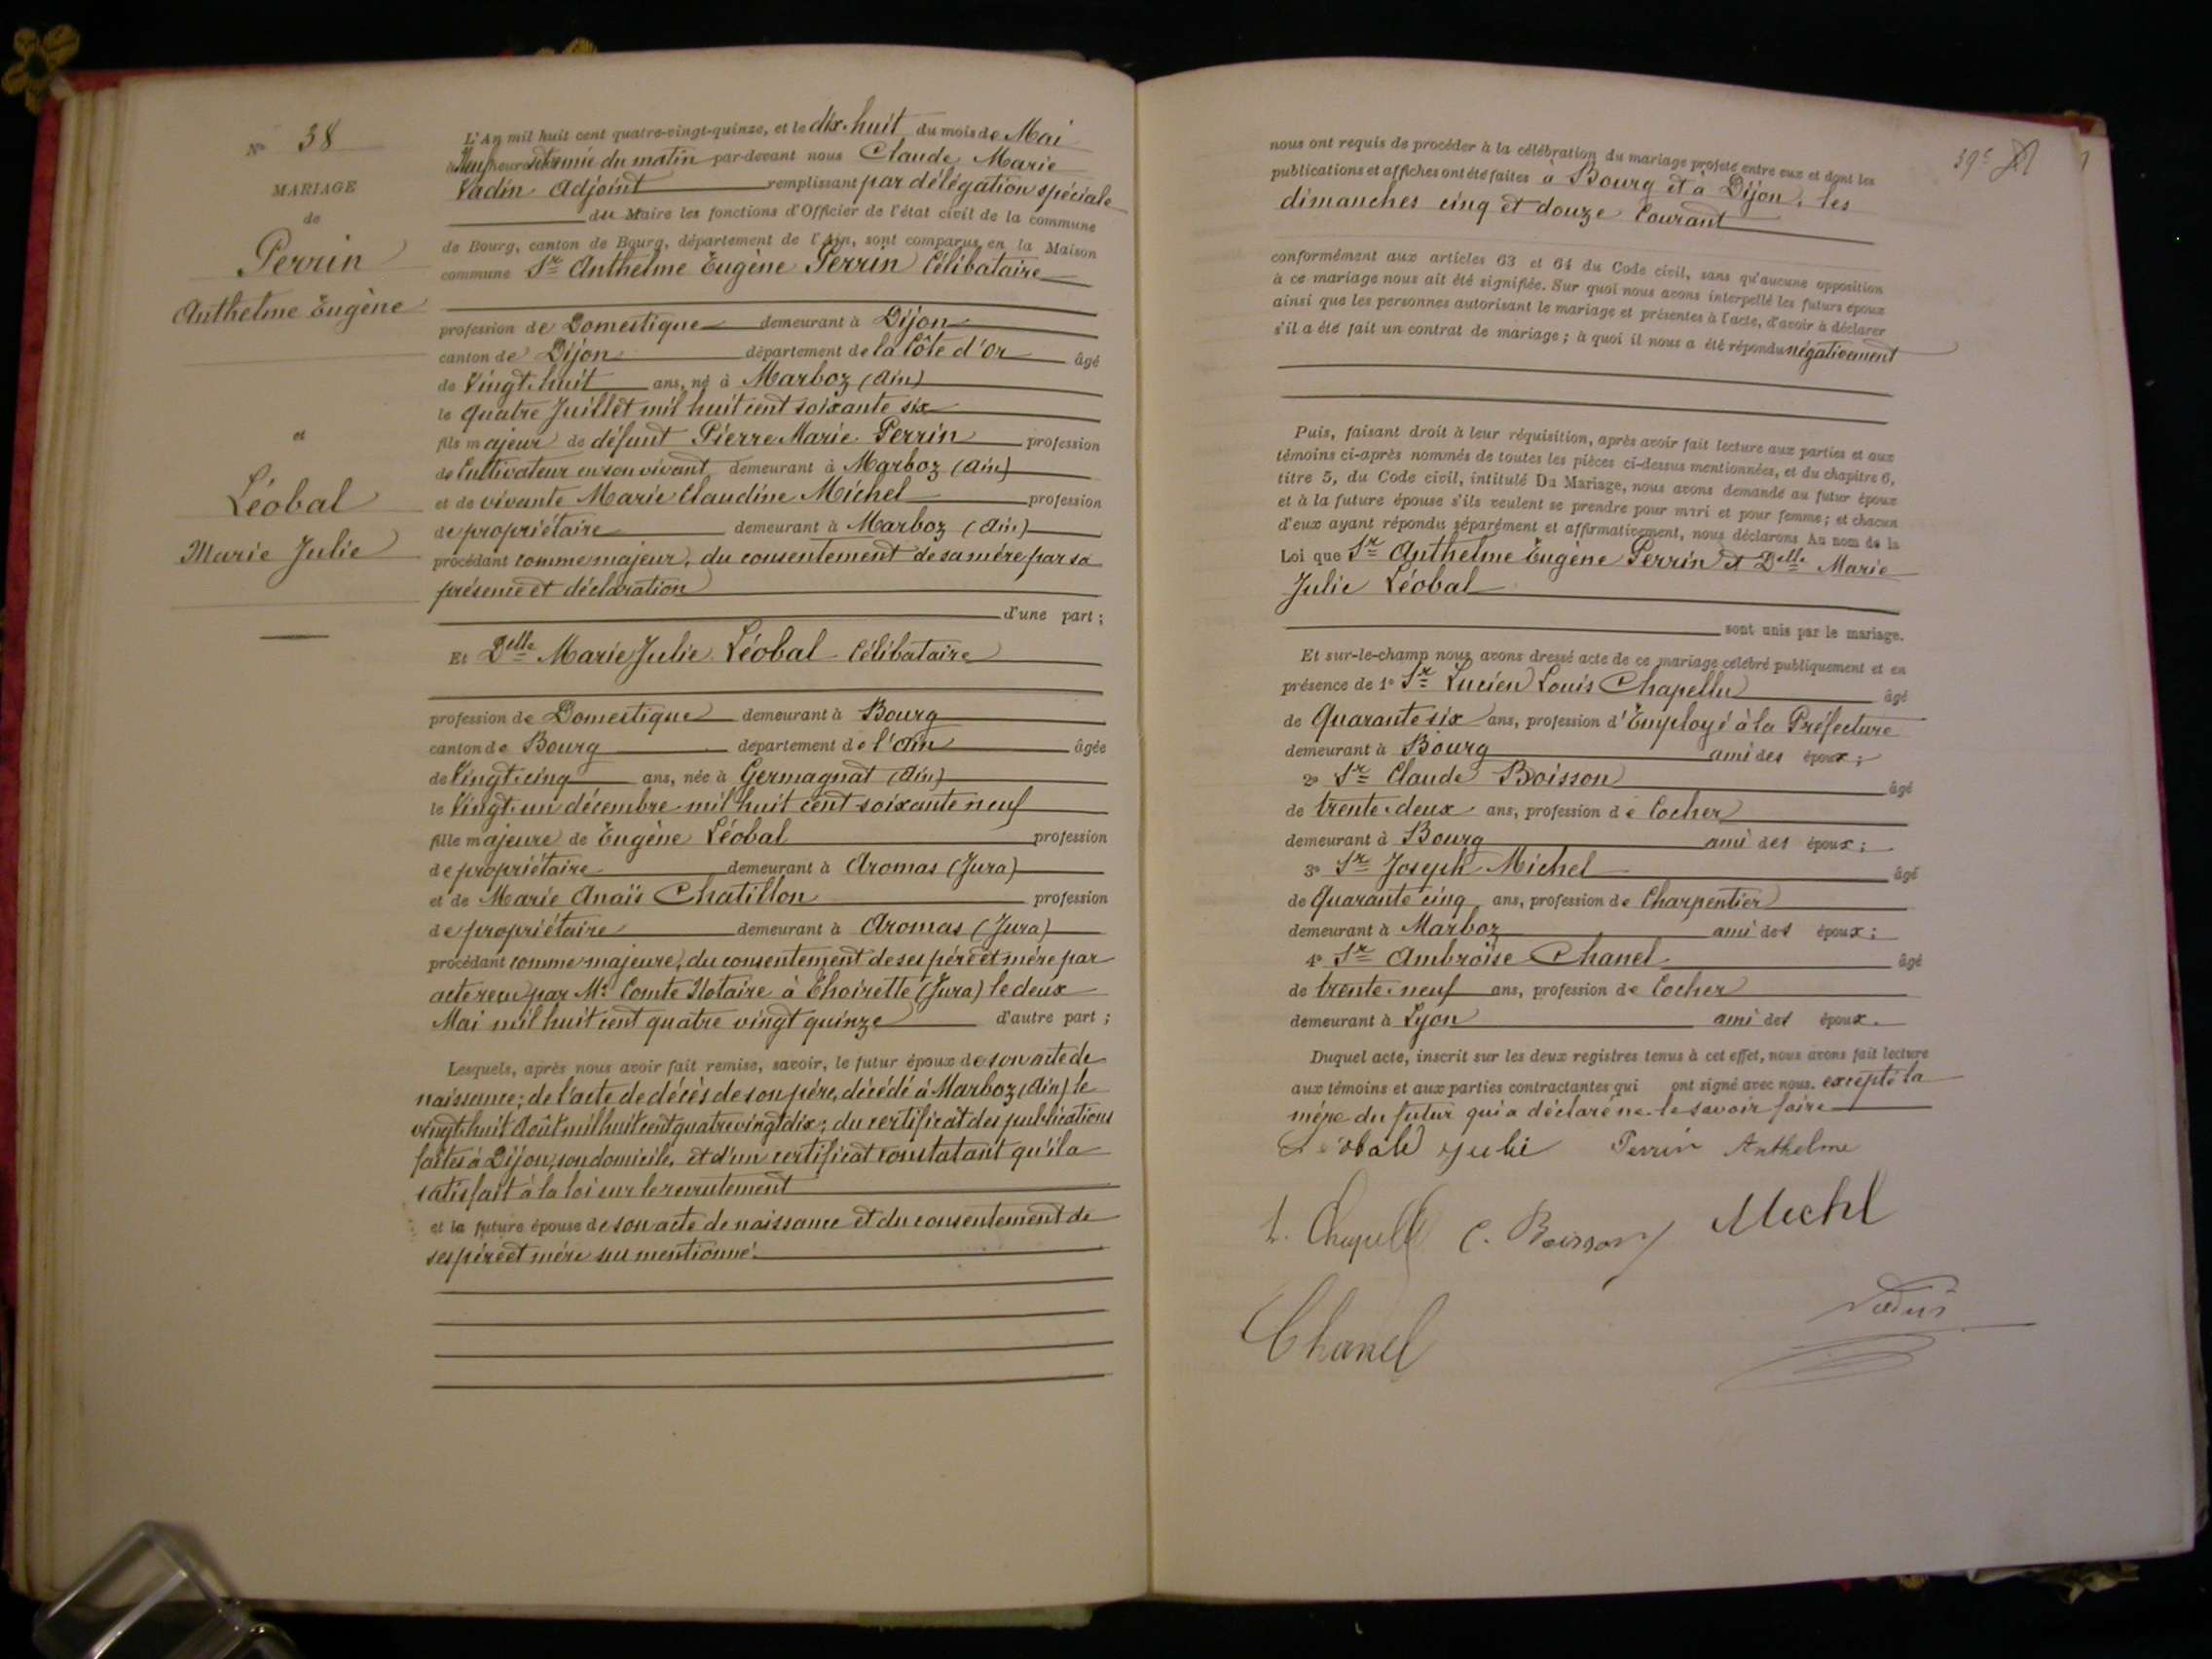 N° 38
MARIAGE
de
Perrin
Anthelme Eugène
et
Léobal
Marie Julie
L'An mil huit cent quatre-vingt-quinze, et le dix-huit du mois de Mai
à Neuf heures et demie du matin par-devant nous Claude Marie
Vadin Adjoint remplissant par délégation spéciale
du Maire les fonctions d'Officier de l'état civil de la commune
de Bourg, canton de Bourg, département de l'Ain, sont comparus en la Maison
commune Sr Anthelme Eugène Perrin Célibataire
profession de Domestique demeurant à Dijon
canton de Dijon département de la Côte d'Or âgé
de Vingt-huit ans, né à Marboz (Ain)
le quatre Juillet mil huit cent soixante six
fils majeur de défunt Pierre Marie Perrin profession
de Cultivateur en son vivant demeurant à Marboz (Ain)
et de vivante Marie Claudine Michel profession
de propriétaire demeurant à Marboz (Ain)
procédant comme majeur, du consentement de sa mère par sa
présence et déclaration
d'une part ;
Et Delle Marie Julie Léobal Célibataire
profession de Domestique demeurant à Bourg
canton de Bourg département de l'Ain âgée
de Vingt-cinq ans, née à Germagnat (Ain)
le Vingt-un décembre mil huit cent soixante neuf
fille majeure de Eugène Léobal profession
de propriétaire demeurant à Aromas (Jura)
et de Marie Anaïs Chatillon profession
de propriétaire demeurant à Aromas (Jura)
procédant comme majeure, du consentement de ses père et mère par
acte reçu par Me Comte Notaire à Thoirette (Jura) le deux
Mai mil huit cent quatre vingt quinze d'autre part ;
Lesquels, après nous avoir fait remise, savoir, le futur époux de son acte de
naissance ; de l'acte de décès de son père, décédé à Marboz (Ain) le
vingt-huit Août mil huit cent quatre vingt dix ; du certificat des publications
faites à Dijon, son domicile, et d'un certificat constatant qu'il a
satisfait à la loi sur le recrutement
et la future épouse de son acte de naissance et du consentement de
ses père et mère sus mentionné.
39e
nous ont requis de procéder à la célébration du mariage projeté entre eux et dont les
publications et affiches ont été faites à Bourg et à Dijon, les
dimanches cinq et douze Courant
conformément aux articles 63 et 64 du Code civil, sans qu'aucune opposition
à ce mariage nous ait été signifiée. Sur quoi nous avons interpellé les futurs époux
ainsi que les personnes autorisant le mariage et présentes à l'acte, d'avoir à déclarer
s'il a été fait un contrat de mariage ; à quoi il nous a été répondu négativement
Puis, faisant droit à leur réquisition, après avoir fait lecture aux parties et aux
témoins ci-après nommés de toutes les pièces ci-dessus mentionnées, et du chapitre 6,
titre 5, du Code civil, intitulé Du Mariage, nous avons demandé au futur époux
et à la future épouse s'ils veulent se prendre pour mari et pour femme ; et chacun
d'eux ayant répondu séparément et affirmativement, nous déclarons Au nom de la
Loi que Sr Anthelme Eugène Perrin et Delle Marie
Julie Léobal
sont unis par le mariage.
Et sur-le-champ nous avons dressé acte de ce mariage célébré publiquement et en
présence de 1° Sr Lucien Louis Chapellu âgé
de Quarante six ans, profession d'Employé à la Préfecture
demeurant à Bourg ami des époux ;
2° Sr Claude Boisson âgé
de trente-deux ans, profession de Cocher
demeurant à Bourg ami des époux ;
3° Sr Joseph Michel âgé
de Quarante cinq ans, profession de Charpentier
demeurant à Marboz ami des époux ;
4° Sr Ambroise Chanel âgé
de trente-neuf ans, profession de Cocher
demeurant à Lyon ami des époux.
Duquel acte, inscrit sur les deux registres tenus à cet effet, nous avons fait lecture
aux témoins et aux parties contractantes qui ont signé avec nous. excepté la
mère du futur qui a déclaré ne le savoir faire
Léobal Julie Perrin Anthelme
C. Boisson Michel
Chanel Vadin